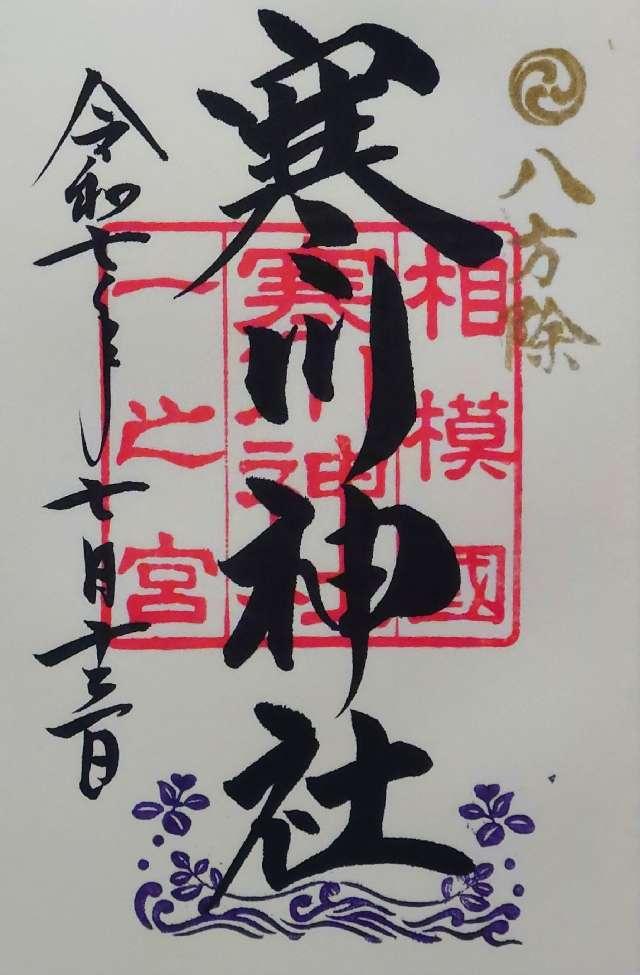 八方除
相模國
寒川神社
一之宮
寒川神社
令和七年七月十三日